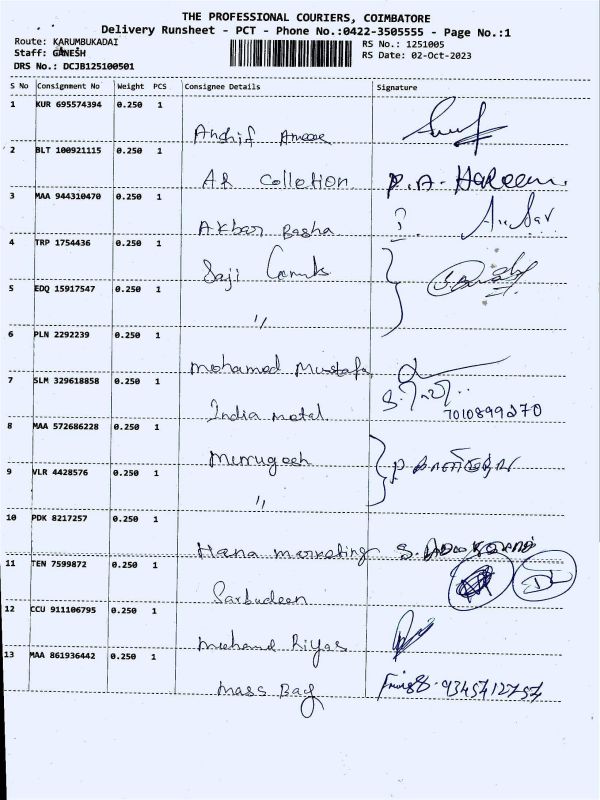 THE PROFESSIONAL COURIERS, COIMBATORE
Delivery Runsheet - PCT - Phone No.:0422-3505555 - Page No.:1
Route: KARUMBUKADAI
RS No.: 1251005
Staff: GANESH
RS Date: 02-Oct-2023
DRS No.: DCJB125100501
S No Consignment No Weight PCS Consignee Details Signature
1 KUR 695574394 0.250 1
Anshif Ameer
2 BLT 100921115 0.250 1
AR Colletion P.A. HaReem.
3 MAA 944310470 0.250 1
Akbar Basha
4 TRP 1754436 0.250 1
Saji
5 EDQ 15917547 0.250 1
〃
6 PLN 2292239 0.250 1
Mohamed Mustafa
7 SLM 329618858 0.250 1
India metal 7010899270
8 MAA 572686228 0.250 1
Murrugesh
9 VLR 4428576 0.250 1
〃
10 PDK 8217257 0.250 1
Hana marketing
11 TEN 7599872 0.250 1
Sarbudeen
12 CCU 911106795 0.250 1
Mohand Riyas
13 MAA 861936442 0.250 1
Mass Bag 9345412757